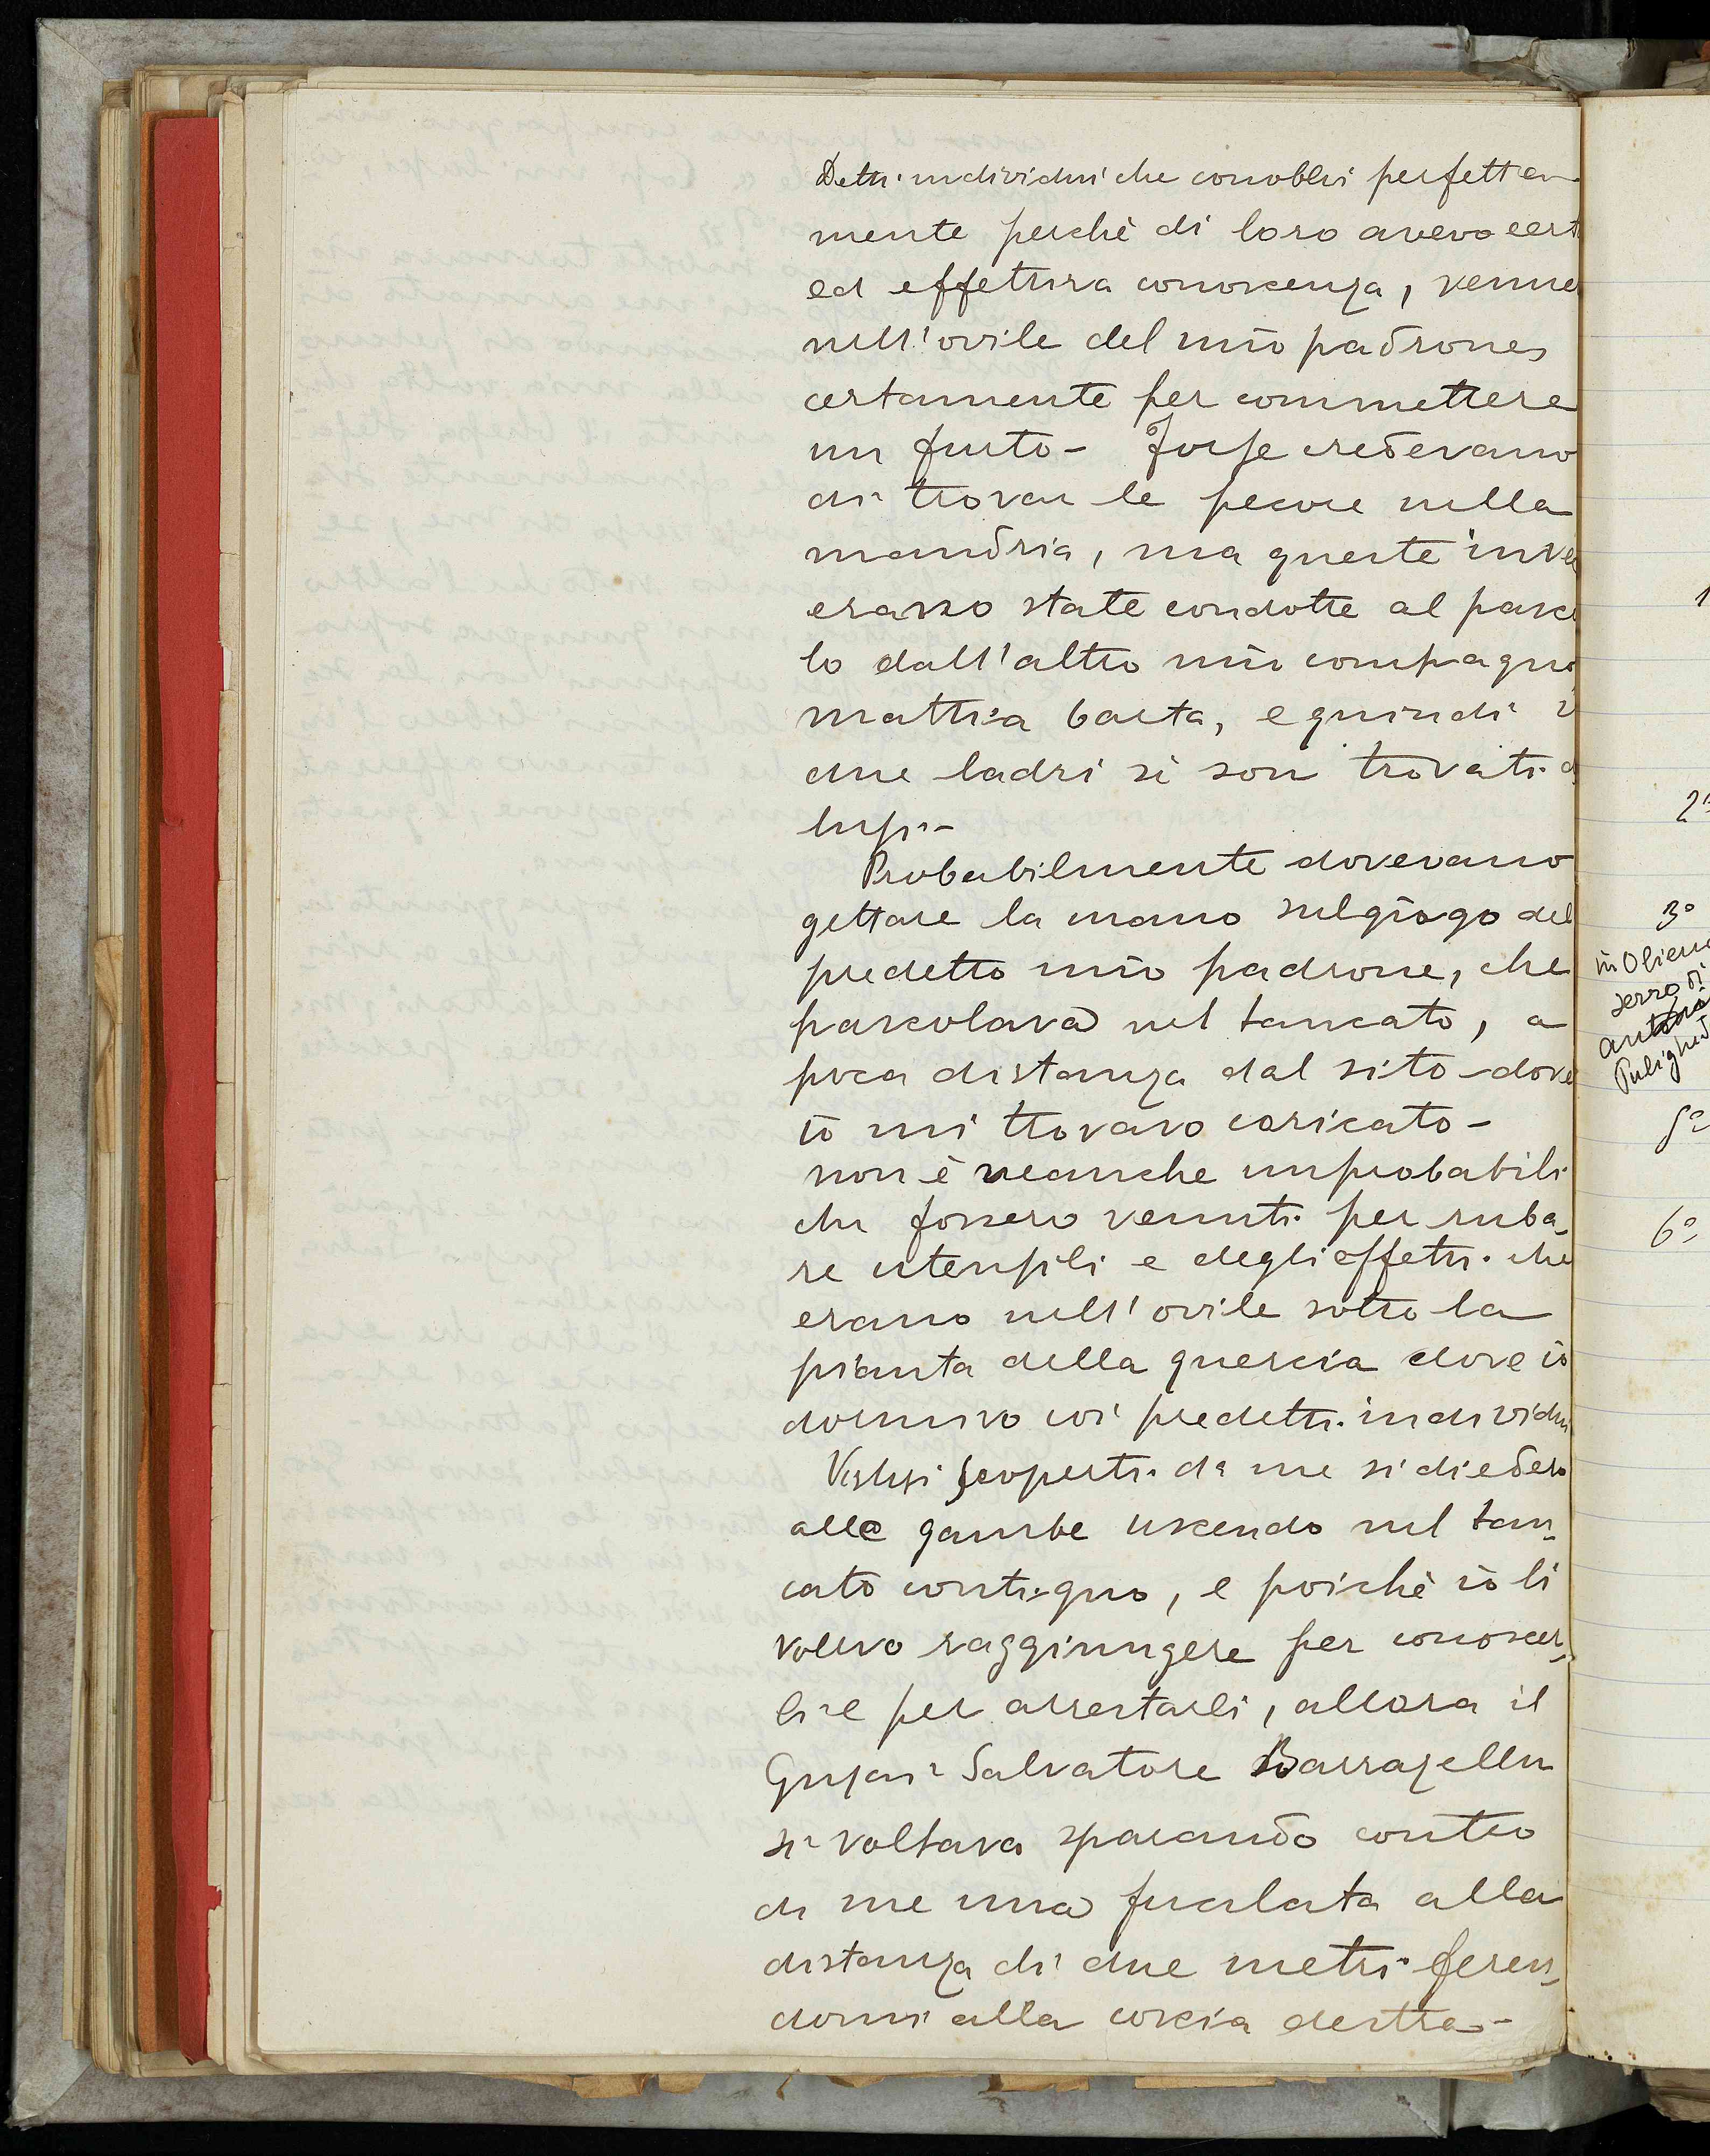 Detti individui che conobbi perfetta-
mente perchè di loro avevo cert
ed effettiva conoscenza, venne
nell'ovile del mio padrone,
certamente per commettere
un furto - Forse credevano
di trovar le pecore nella
mandria, ma queste inve
erano state condotte al pasco
lo dall'altro mio compagno
Mattia Casta, e quindi i
due ladri si son trovati d
lusi -
Probabilmente dovevano
gettare la mano sul giogo del
predetto mio padrone, che
pascolava nel tancato, a
poca distanza dal sito dove
io mi trovavo coricato -
non è neanche improbabili
che fossero venuti per ruba-
re utensili e degli effetti che
erano nell'ovile sotto la
pianta della quercia dove io
dormivo coi predetti individui
Vistisi scoperti da me si diedero
alle gambe uscendo nel tan-
cato contiguo, e poichè io li
volevo raggiungere per conoscer-
li e per arrestarli, allora il
Salvatore Barrazellu
si voltava sparando contro
di me una fucilata alla
distanza di due metri feren-
domi alla coscia destra -
1
2°
3°
in Oliena
servo di
Puligheddu
5°
6°